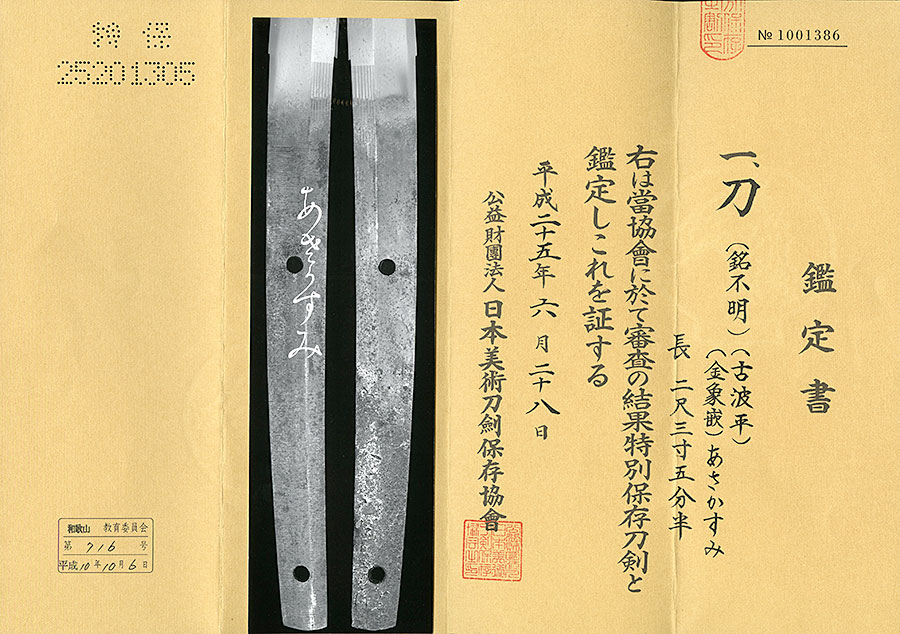 № 1001386
鑑定書
一、刀
(銘不明)(古波平)
(金象嵌)あさかすみ
長 二尺三寸五分半
右は當協會に於て審査の結果特別保存刀剣と
鑑定しこれを証する
平成二十五年六月二十八日
公益財團法人 日本美術刀劍保存協會
あさかすみ
特保
25201305
和歌山 教育委員会
第 716 号
平成10年10月6日